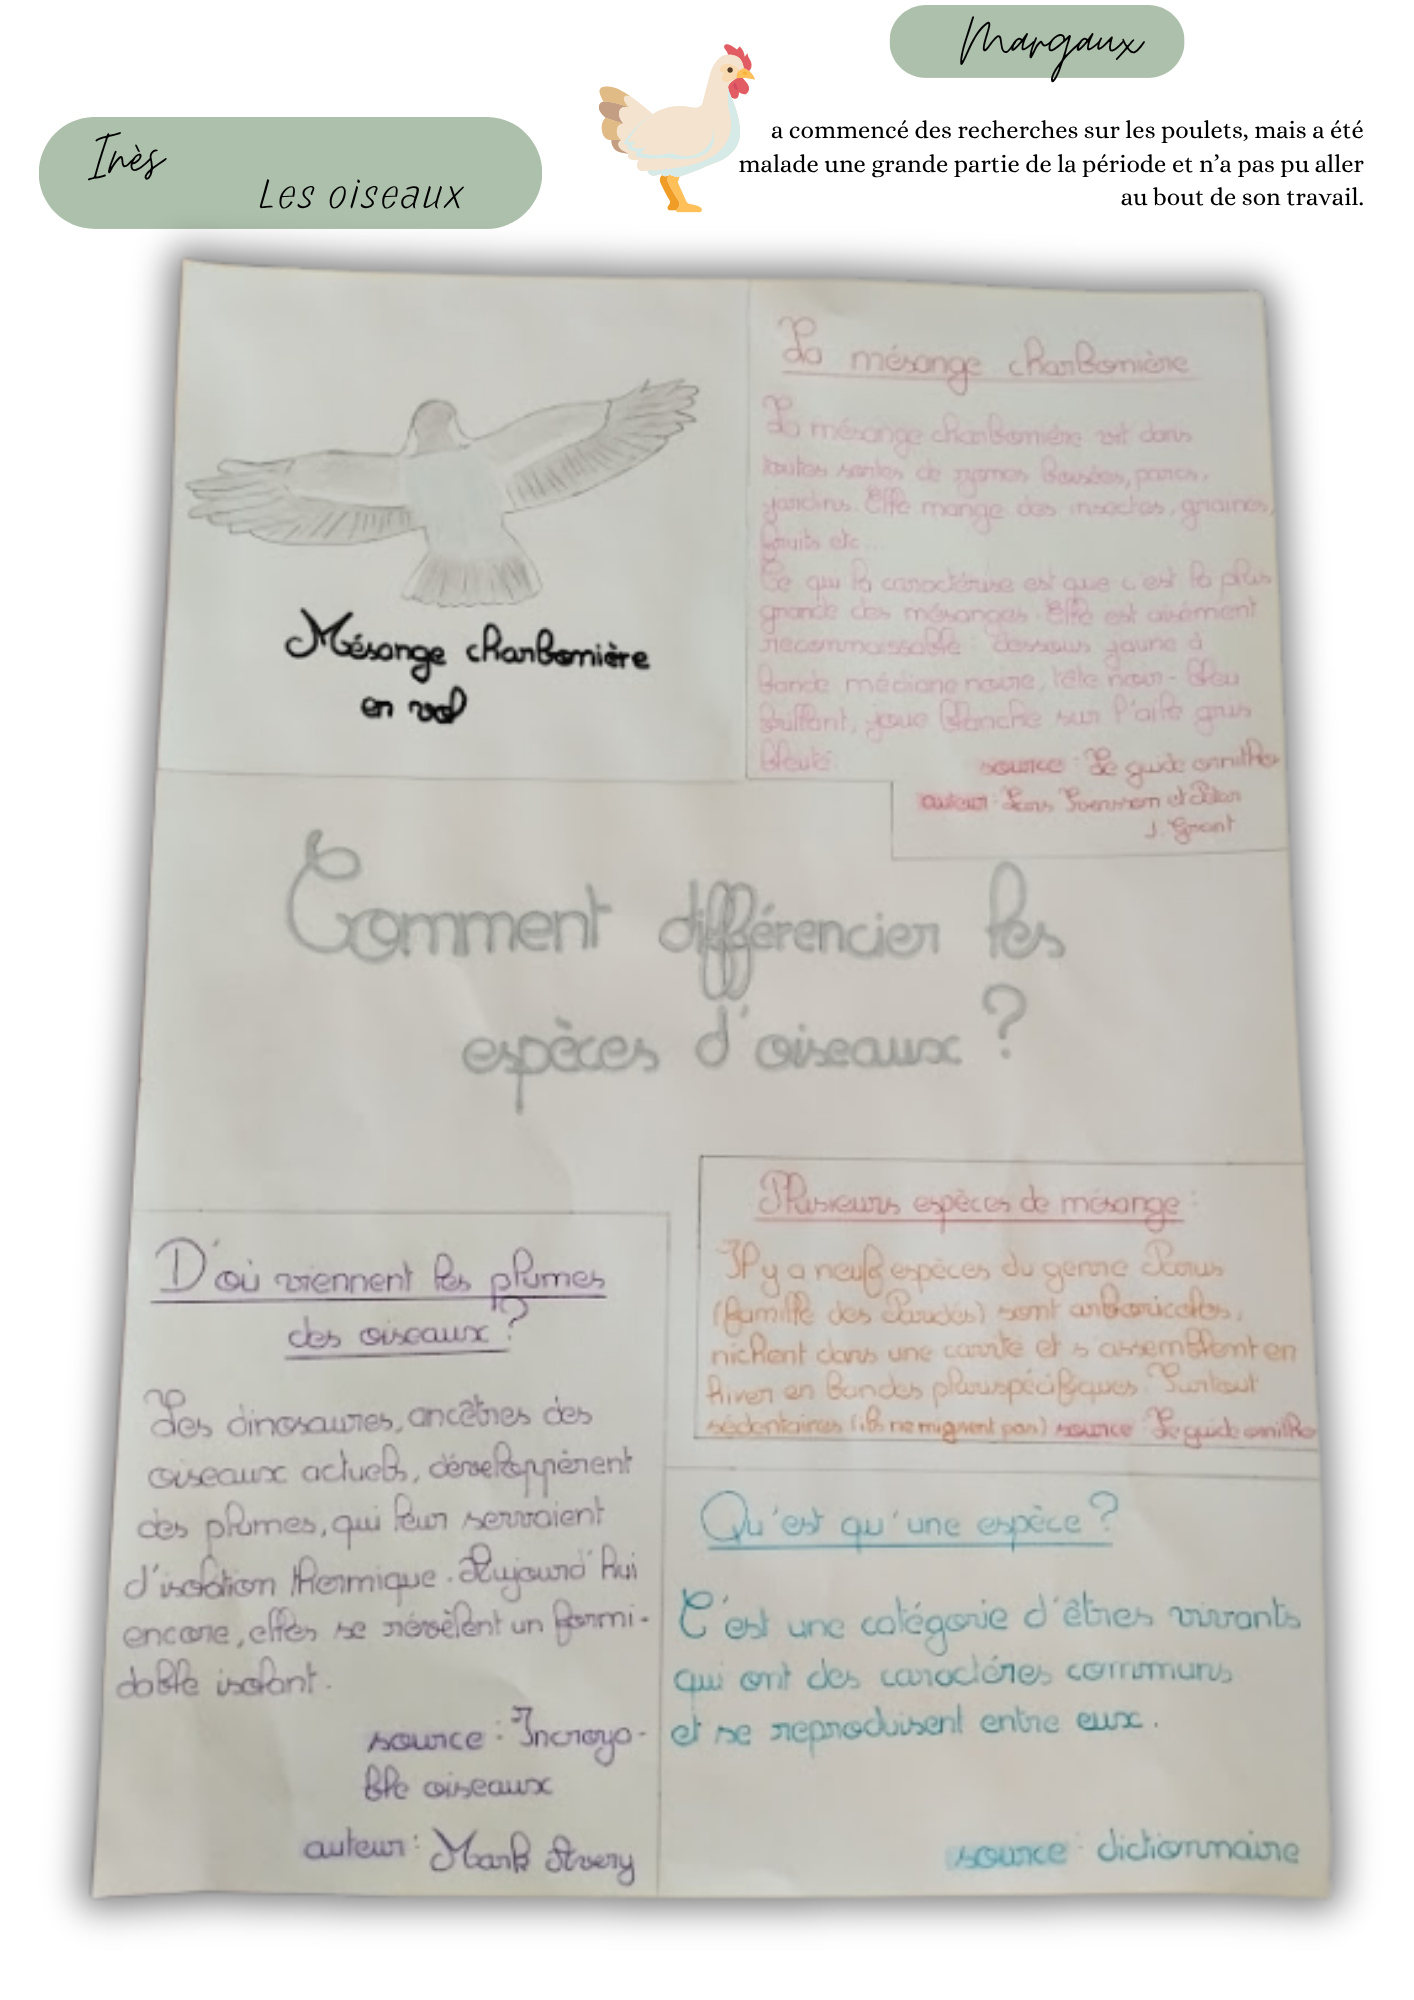 Margaux
a commencé des recherches sur les poulets, mais a été
malade une grande partie de la période et n’a pas pu aller
au bout de son travail.
Inès
Les oiseaux
La mésange charbonnière
La mésange charbonnière vit dans
toutes sortes de zones boisées, parcs,
jardins. Elle mange des insectes, graines,
fruits etc...
Ce qui la caractérise est que c'est la plus
grande des mésanges. Elle est aisément
reconnaissable : dessous jaune à
bande médiane noire, tête noir-bleu
brillant, joue blanche sur l'aile gris
bleuté.
source : Le guide ornitho
auteur : Lars Svensson et Peter
J. Grant
Mésange charbonnière
en vol
Comment différencier les
espèces d'oiseaux ?
Plusieurs espèces de mésange :
Il y a neuf espèces du genre Parus
(famille des Paridés) sont arboricoles,
nichent dans une cavité et s'assemblent en
hiver en bandes plurispécifiques. Surtout
sédentaires (ils ne migrent pas) source : Le guide ornitho
D'où viennent les plumes
des oiseaux ?
Les dinosaures, ancêtres des
oiseaux actuels, développèrent
des plumes, qui leur servaient
d'isolation thermique. Aujourd'hui
encore, elles se révèlent un formi-
dable isolant.
source : Incroya-
ble oiseaux
auteur : Mark Avery
Qu'est qu'une espèce ?
C'est une catégorie d'êtres vivants
qui ont des caractéres communs
et se reproduisent entre eux.
source : dictionnaire